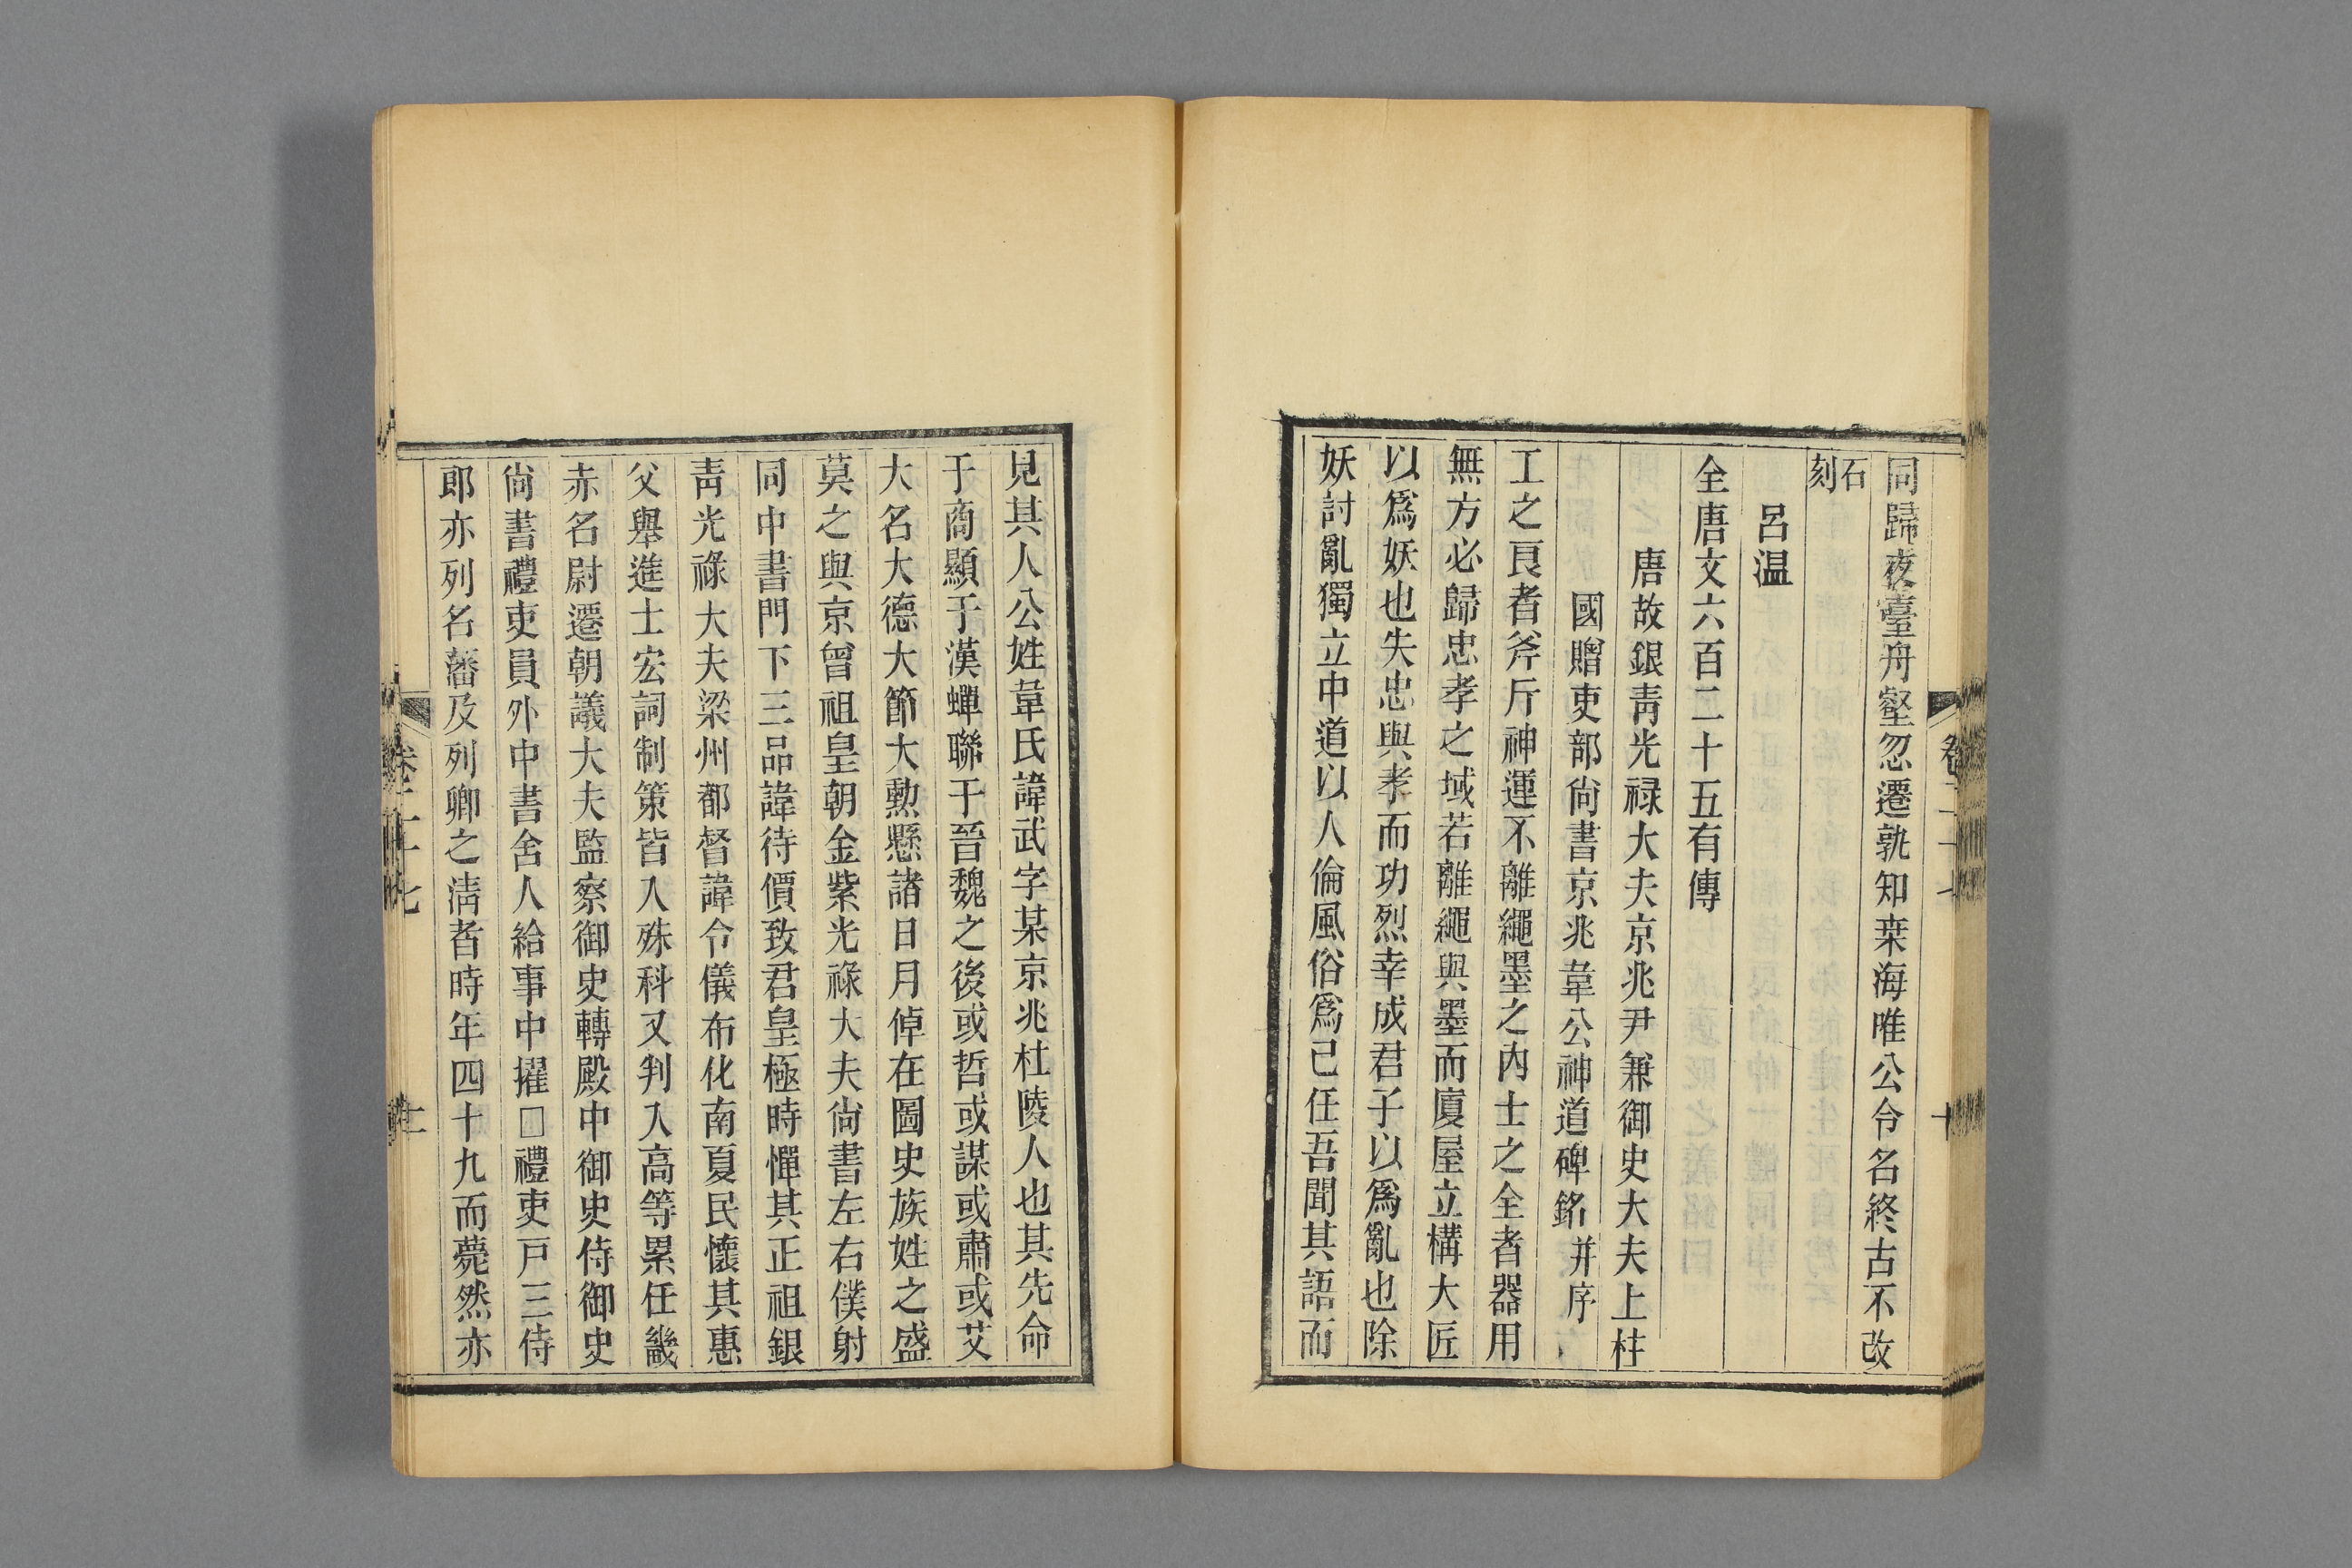 同歸夜臺舟壑忽遷孰知桒海唯公令名終古不改
石刻
呂温
全唐文六百二十五有傳
唐故銀靑光禄大夫京兆尹兼御史大夫上柱
國贈吏部尙書京兆韋公神道碑銘并序
工之良者斧斤神運不離繩墨之內士之全者器用
無方必歸忠孝之域若離繩與墨而廈屋立構大匠
以爲妖也失忠與孝而功烈幸成君子以爲亂也除
妖討亂獨立中道以人倫風俗爲己任吾聞其語而
見其人公姓韋氏諱武字某京兆杜陵人也其先命
于商顯于漢蟬聯于晉魏之後或哲或謀或肅或艾
大名大德大節大勲懸諸日月倬在圖史族姓之盛
莫之與京曾祖皇朝金紫光祿大夫尙書左右僕射
同中書門下三品諱待價致君皇極時憚其正祖銀
靑光祿大夫梁州都督諱令儀布化南夏民懷其惠
父舉進士宏詞制策皆入殊科又判入高等累任畿
赤名尉遷朝議大夫監察御史轉殿中御史侍御史
尙書禮吏員外中書舍人給事中擢□禮吏戸三侍
郎亦列名藩及列卿之淸者時年四十九而薨然亦
卷二十七
十
十一